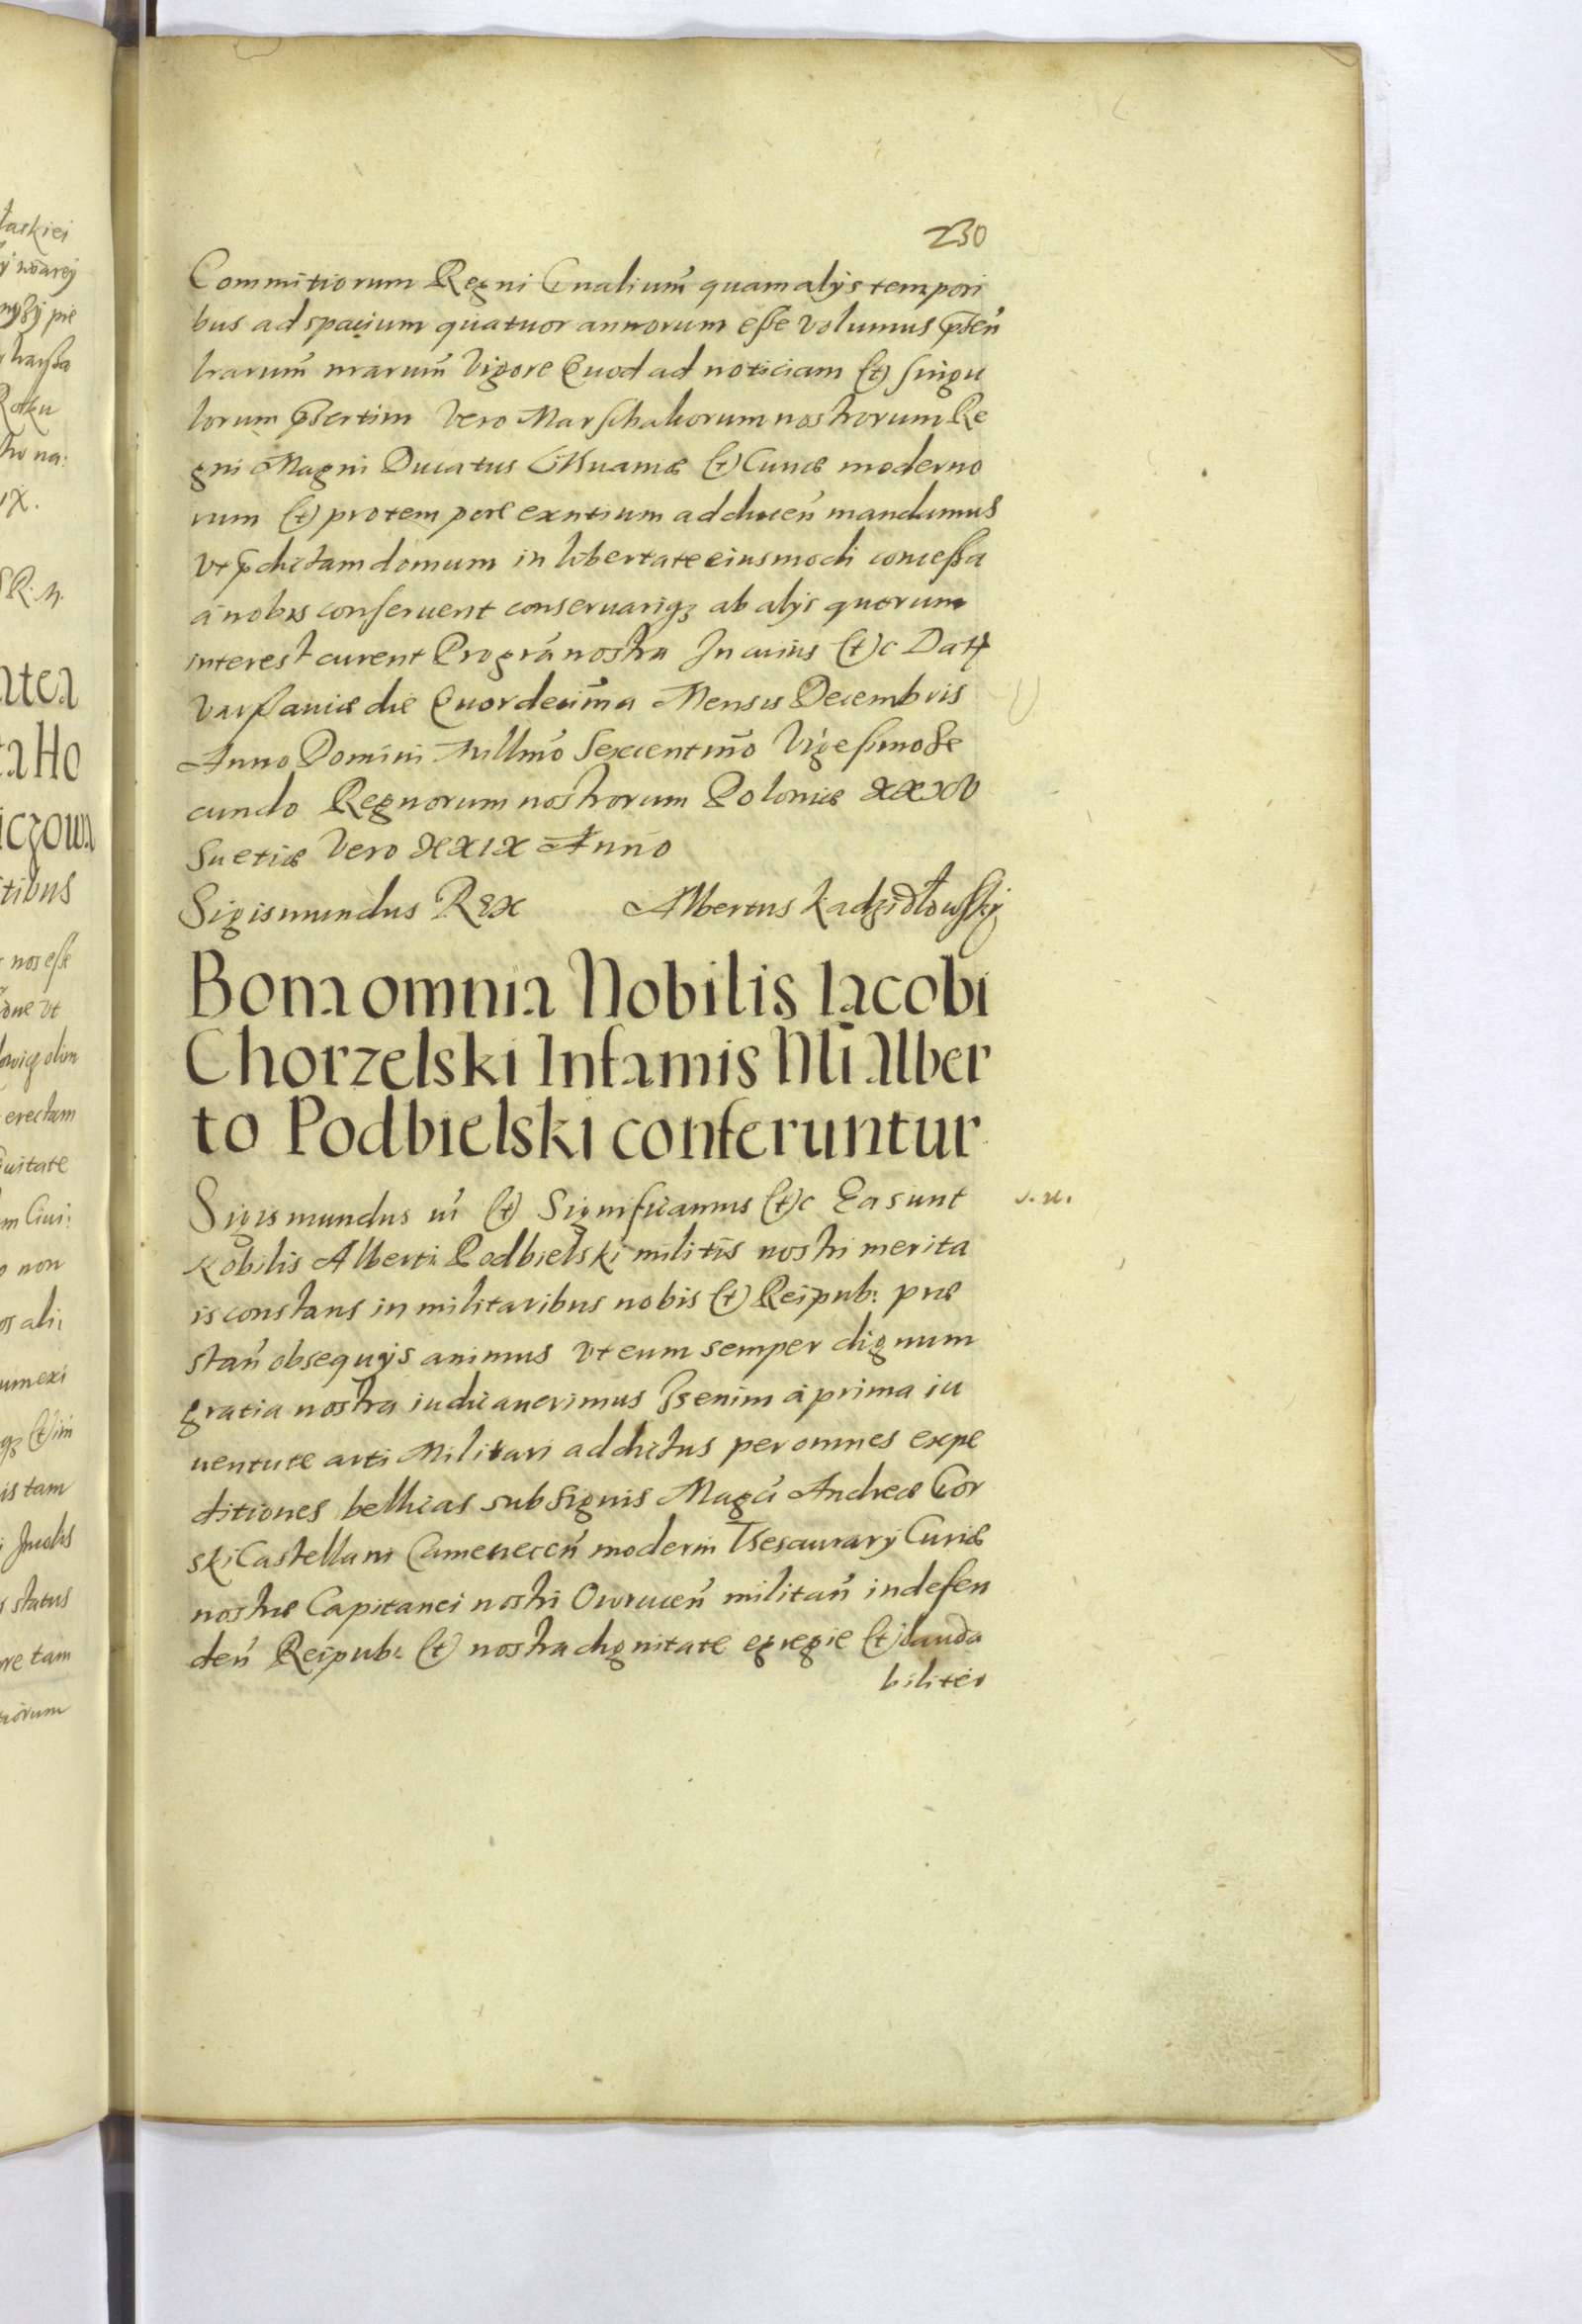 230
Commitiorum Regni Gnalium quam alijs tempori
bus ad spacium quatuor annorum esse volumus Pñsen
lrarum nrarum vigore Quod ad noticiam (et) singu
lorum Psertim vero Marschalcorum nostrorum Re
gni Magni Ducatus Littuaniæ (et) Curiæ moderno
rum (et) pro tempore exntium adducen mandamus
vt pdictam domum in libertate eiusmodi concessa
a nobis conseruent conseruariq; ab alijs quorum
interest curent Pro gra nostra In cuius (et)c Datt
Varsauiæ die Quordecima Mensis Decembris
Anno Domini Millmo Sexcentmo Vigesimo Se
cundo Regnorum nostrorum Poloniæ XXXV
Suetiæ Vero XXIX Anno
Sigismundus Rex Albertus Kadzidłowsky
Bona omnia Nobilis Iacobi
Chorzelski Infamis Nli Alber
to Podbielski conferuntur
Sigismundus III (et) Significamus (et)c Ea sunt
Nobilis Alberti Podbielski militis nostri merita
is constans in militaribus nobis (et) Reipub: præ
stan obsequijs animus vt eum semper dignum
gratia nostra iudicauerimus Is enim a prima iu
uentute arti Militari addictus per omnes expe
ditiones bellicas sub signis Magci Andreæ Gor
ski Castellani Camenecen moderni Thesaurarij Curiæ
nostræ Capitanei nostri Owrucen militan in defen
den Reipub: (et) nostra dignitate egregie (et) lauda
biliter